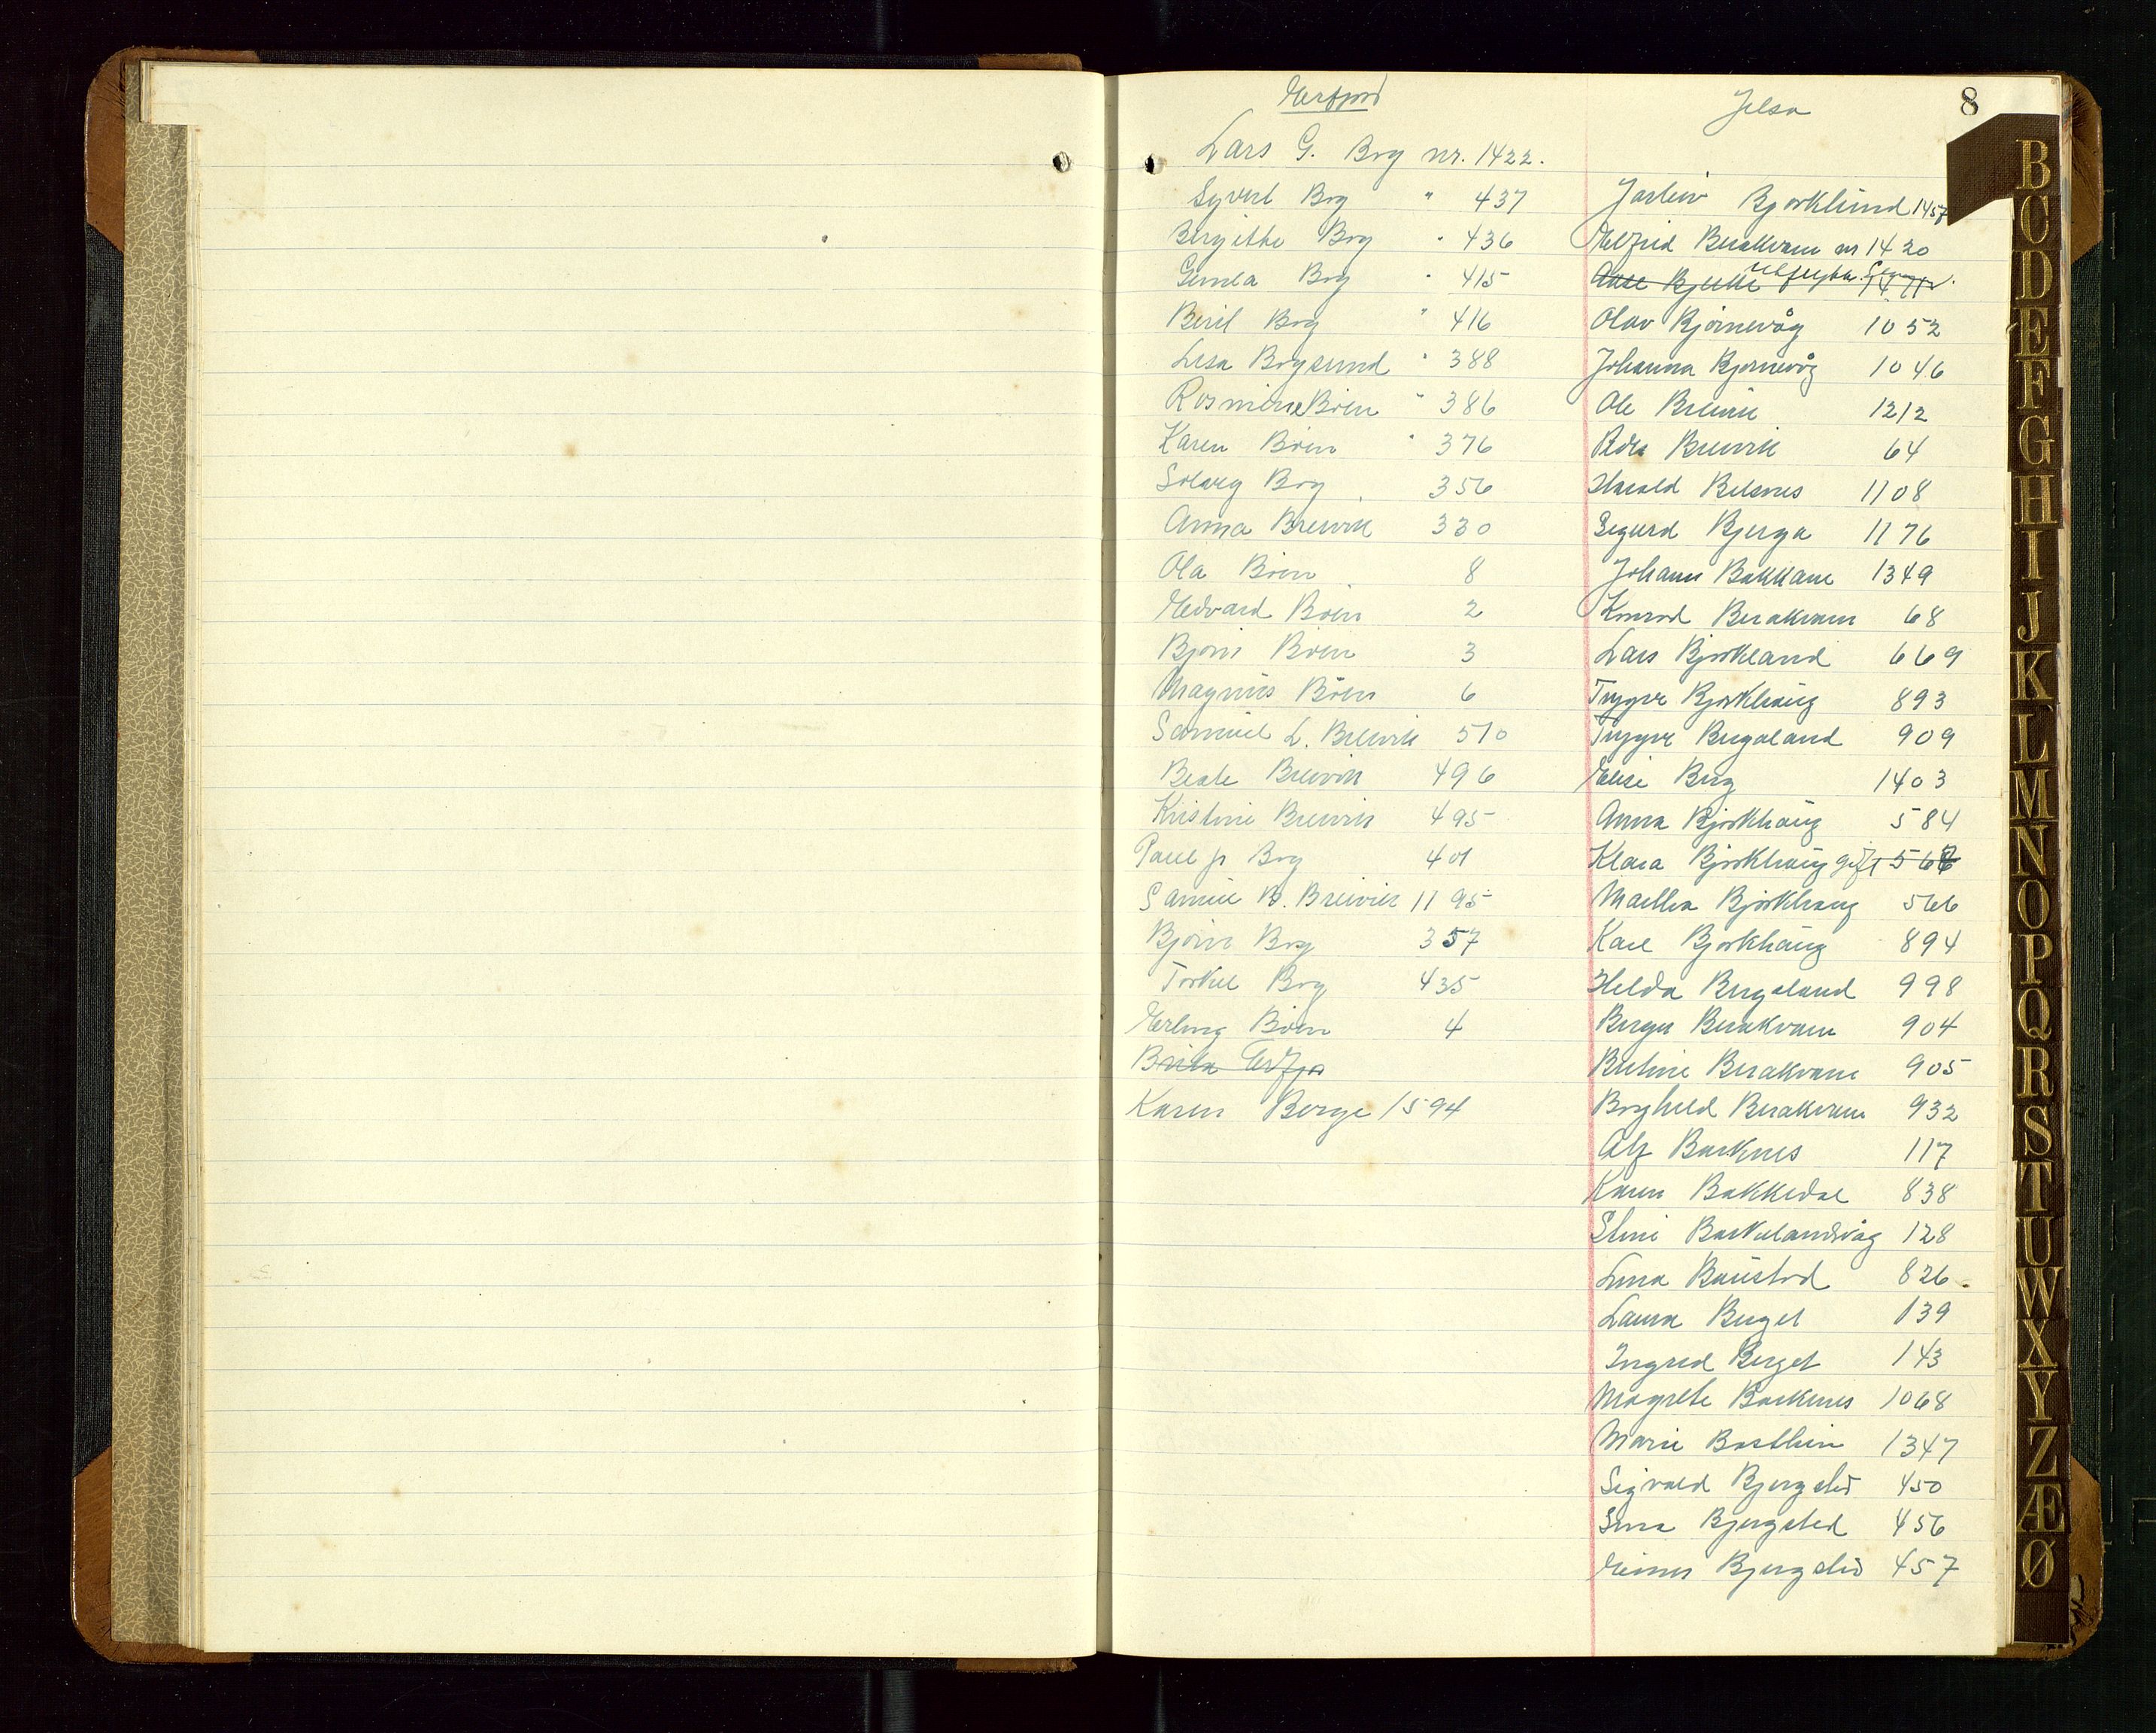 8
Erfjord
Lars G. Bog nr. 1422.
Syvert Bog " 437
Birgitte Bog " 436
Gunla Bog " 415
Beret Bog " 416
Lisa Bogsund " 388
Rosmine Boen " 386
Karen Boen " 376
Solveig Bog 356
Anna Breivik 330
Ola Boen 8
Edvard Boen 2
Bjorn Boen 3
Magnus Boen 6
Samuel L. Breivik 510
Beate Breivik 496
Kristine Breivik 495
Paul jr Bog 401
Samuel B. Breivik 1195
Bjorn Bog 357
Torkel Bog 435
Erling Boen 4
Brita Erfjo
Karen Berge 1594
Jelsa
Jarleiv Bjorklund 1457
Elfrid Berakvam nr 1420
Bjelke
Olav Bjørnevåg 1052
Johanna Bjørnevåg 1046
Ole Breivik 1212
Peder Breivik 64
Harald Belsnes 1108
Sigurd Bjerga 1176
Johans Bakkane 1349
Konrad Berakvam 68
Lars Bjorkland 669
Trygve Bjorkhaug 893
Trygve Bergaland 909
Elise Berg 1403
Anna Bjorkhaug 584
Klara Bjorkhaug gift 566
Martha Bjorkhaug 566
Karl Bjorkhaug 894
Helda Bergaland 998
Berger Berakvam 904
Bertine Berakvam 905
Borghild Berakvam 932
Alf Barknes 117
Karen Bakkedal 838
Stine Barkelandsvåg 128
Lina Baustad 826
Laura Berget 139
Ingrid Berget 143
Magrete Barknes 1068
Marie Barthun 1347
Sigvald Bjergsted 450
Sina Bjergsted 456
Einar Bjergsted 457
B
C
D
E
F
G
H
I
J
K
L
M
N
O
P
Q
R
S
T
U
W
X
Y
Z
Æ
Ø